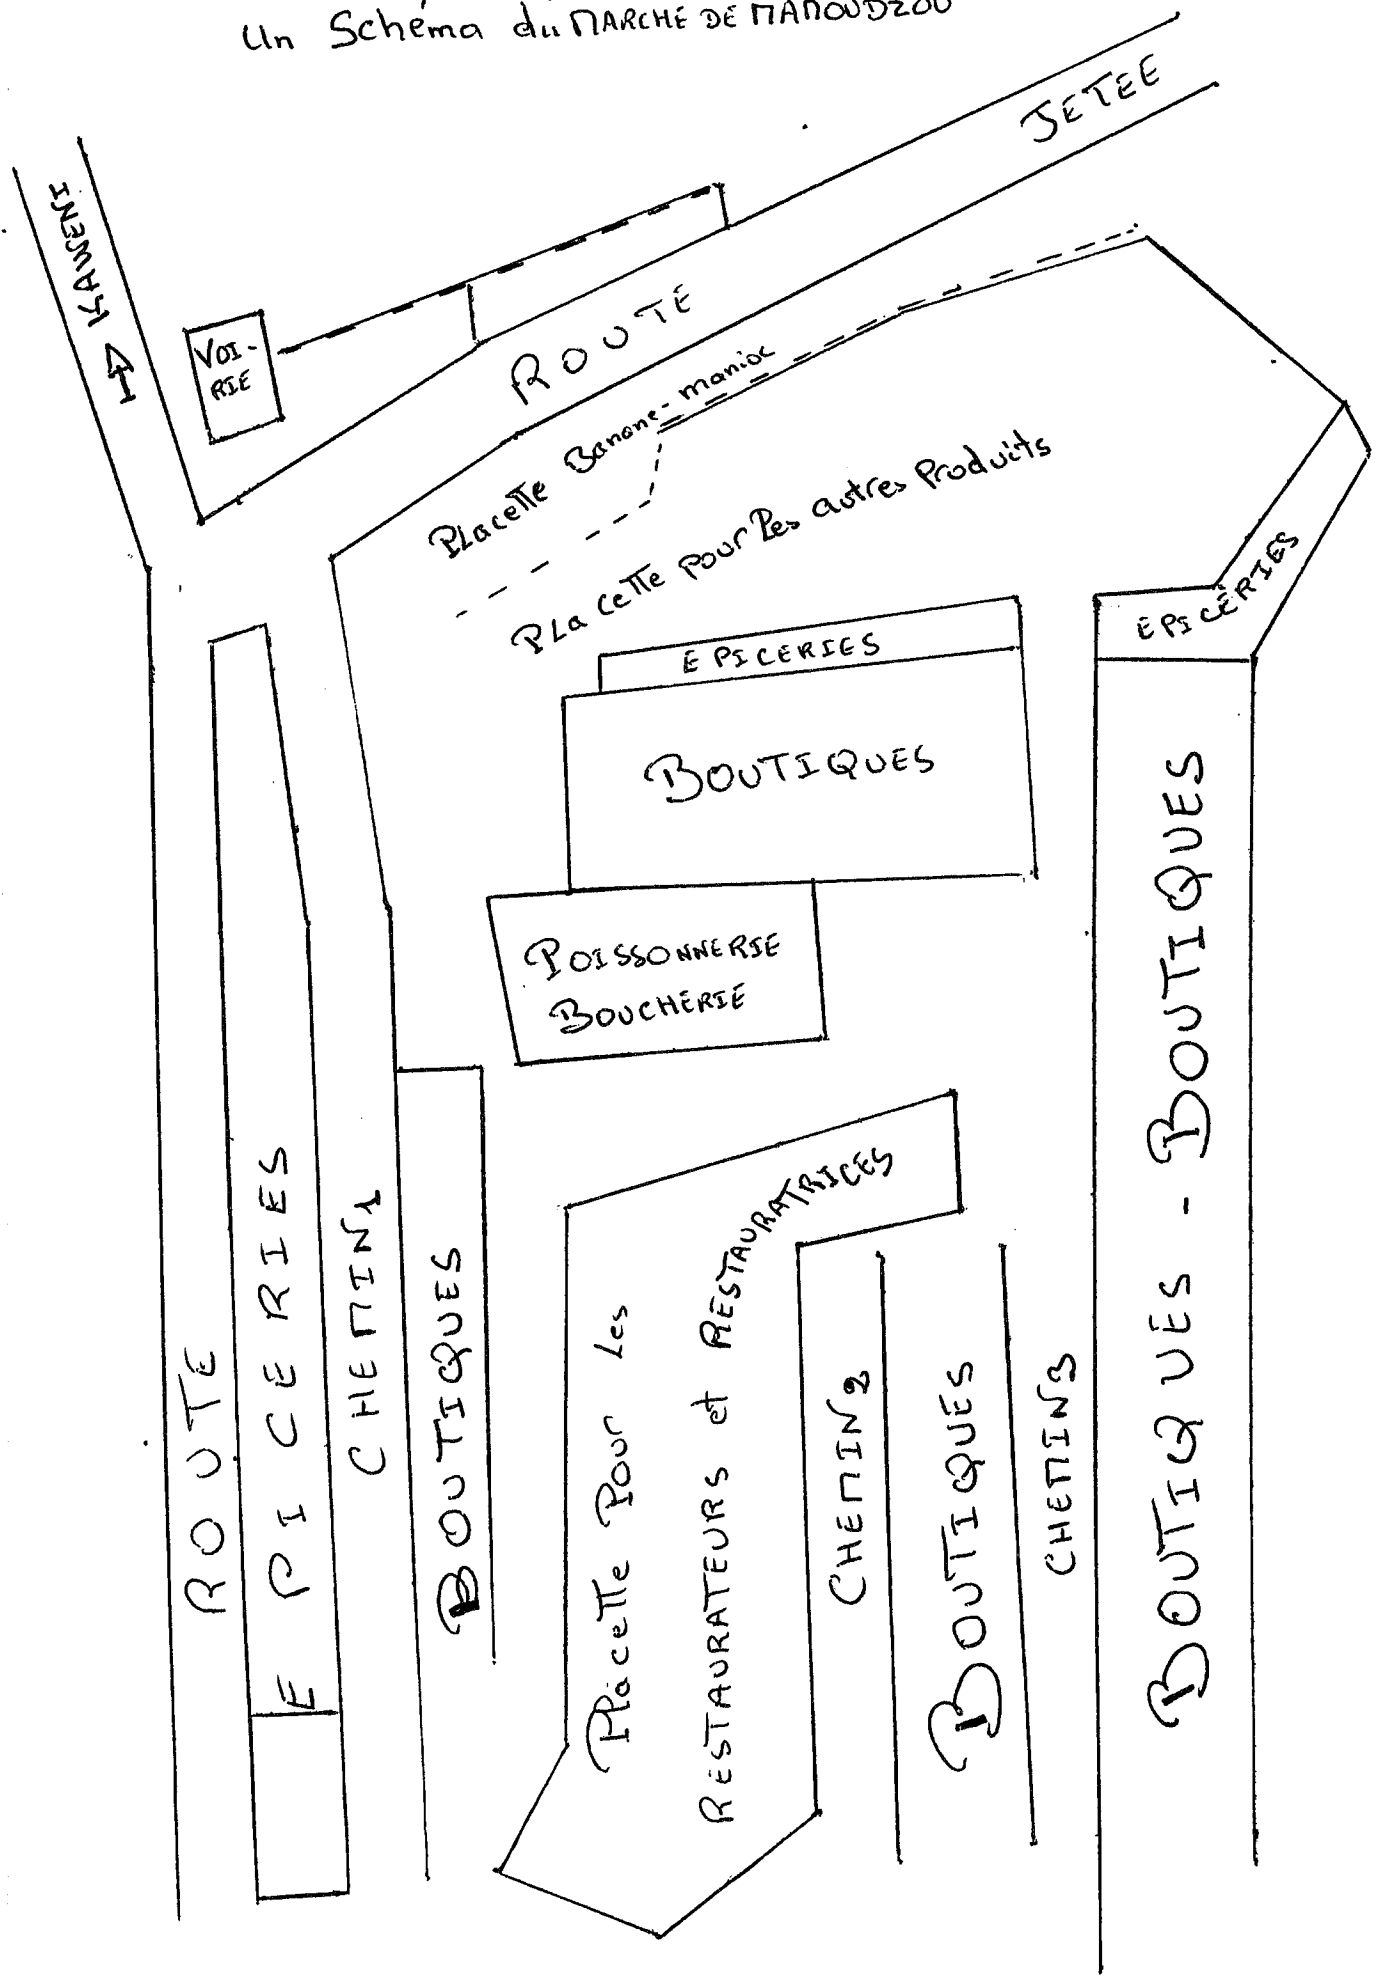 Un Schéma du MARCHÉ DE MAMOUDZOU
JETEE
KAWENI
VOI-
RIE
ROUTE
Placette Banane-manioc
Placette pour les autres Produits
EPICERIES
EPICERIES
BOUTIQUES
POISSONNERIE
BOUCHERIE
ROUTE
EPICERIES
CHEMIN1
BOUTIQUES
Placette Pour Les
RESTAURATEURS et RESTAURATRICES
CHEMIN2
BOUTIQUES
CHEMIN3
BOUTIQUES - BOUTIQUES